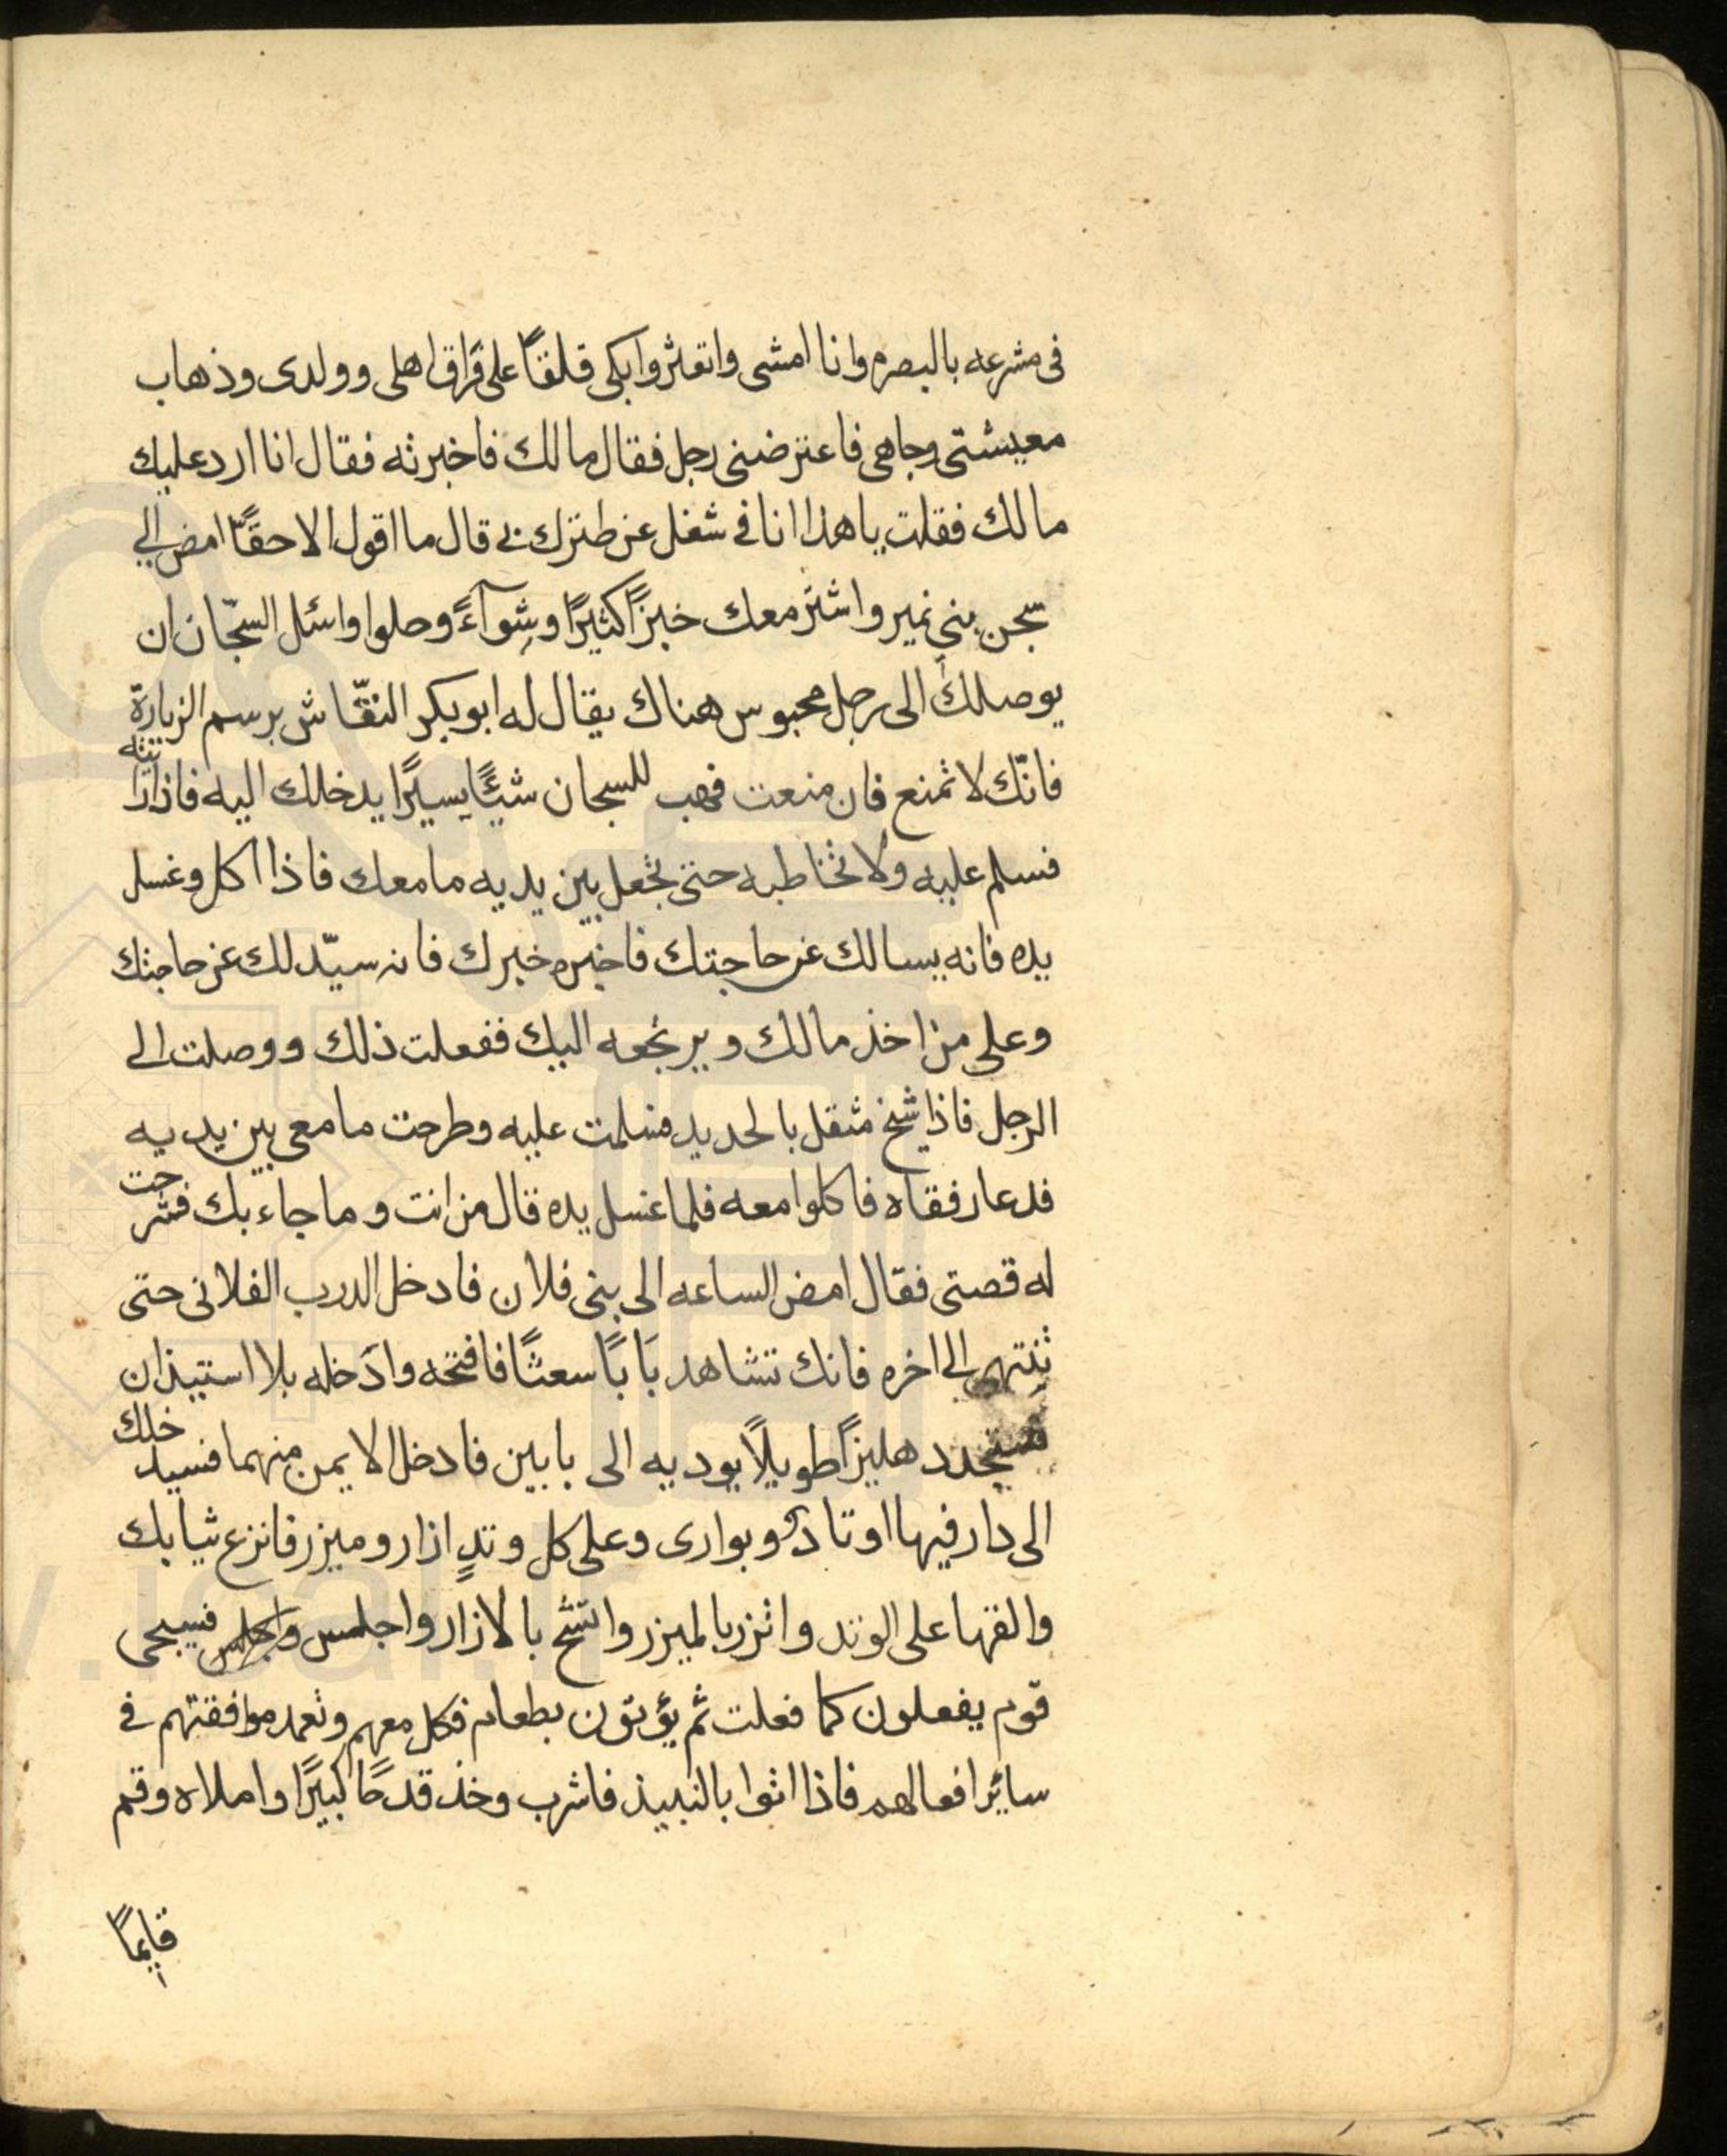 فى مشرعه بالبصره وانا امشى واتعثر وابكى قلقاً على فَراق اهلى وولدى وذهاب
معيشتى وجاهى فاعترضنى رجل فقال مالك فاخبرته فقال انا ارد عليك
مالك فقلت يا هذا انا فى شغل عن طنزك بى قال ما اقول الا حقًّا امض الى
سجن بنى نمير واشتر معك خبزًا كثيرًا وشِوآءً وحلوا واسئل السجّان ان
يوصلك الى رجل محبوس هناك يقال له ابوبكر النقّاش برسم الزيارة
فانّك لا تمنع فان منعت فهب للسجان شيئًا يسيرًا يدخلك اليه فاذا رايته
فسلم عليه ولا تخاطبه حتى تجعل بين يديه ما معك فاذا اكل وغسل
يده فانه يسالك عن حاجتك فاخبره خبرك فانه سيّدلك عن حاجتك
وعلى من اخذ مالك ويرتجعه اليك ففعلت ذلك ووصلت الى
الرجل فاذا شيخ مثقل بالحديد فسلمت عليه وطرحت ما معى بين يديه
فدعا رفقاه فاكلوا معه فلما غسل يده قال من انت وما جاء بك فشرحت
له قصتى فقال امض الساعه الى بنى فلان فادخل الدرب الفلانى حتى
تنتهى الى اخره فانك تشاهد بَابًا سعثًا فافتحه وادَخله بلا استيذان
فستجد دهليزًا طويلًا يوديه الى بابين فادخل الايمن منهما فسيدخلك
الى دار فيها اوتادٌ وبوارى وعلى كل وتدٍ ازار وميزر فانزع ثيابك
والقها على الوتد واتزر بالميزر واتشح بالازار واجلس واجلس فسيجى
قوم يفعلون كما فعلت ثم يؤتون بطعام فكل معهم وتعمد موافقتهم فى
ساير افعالهم فاذا اتوا بالنبيذ فاشرب وخذ قدحًا كبيرًا واملاه وقم
قايمًا